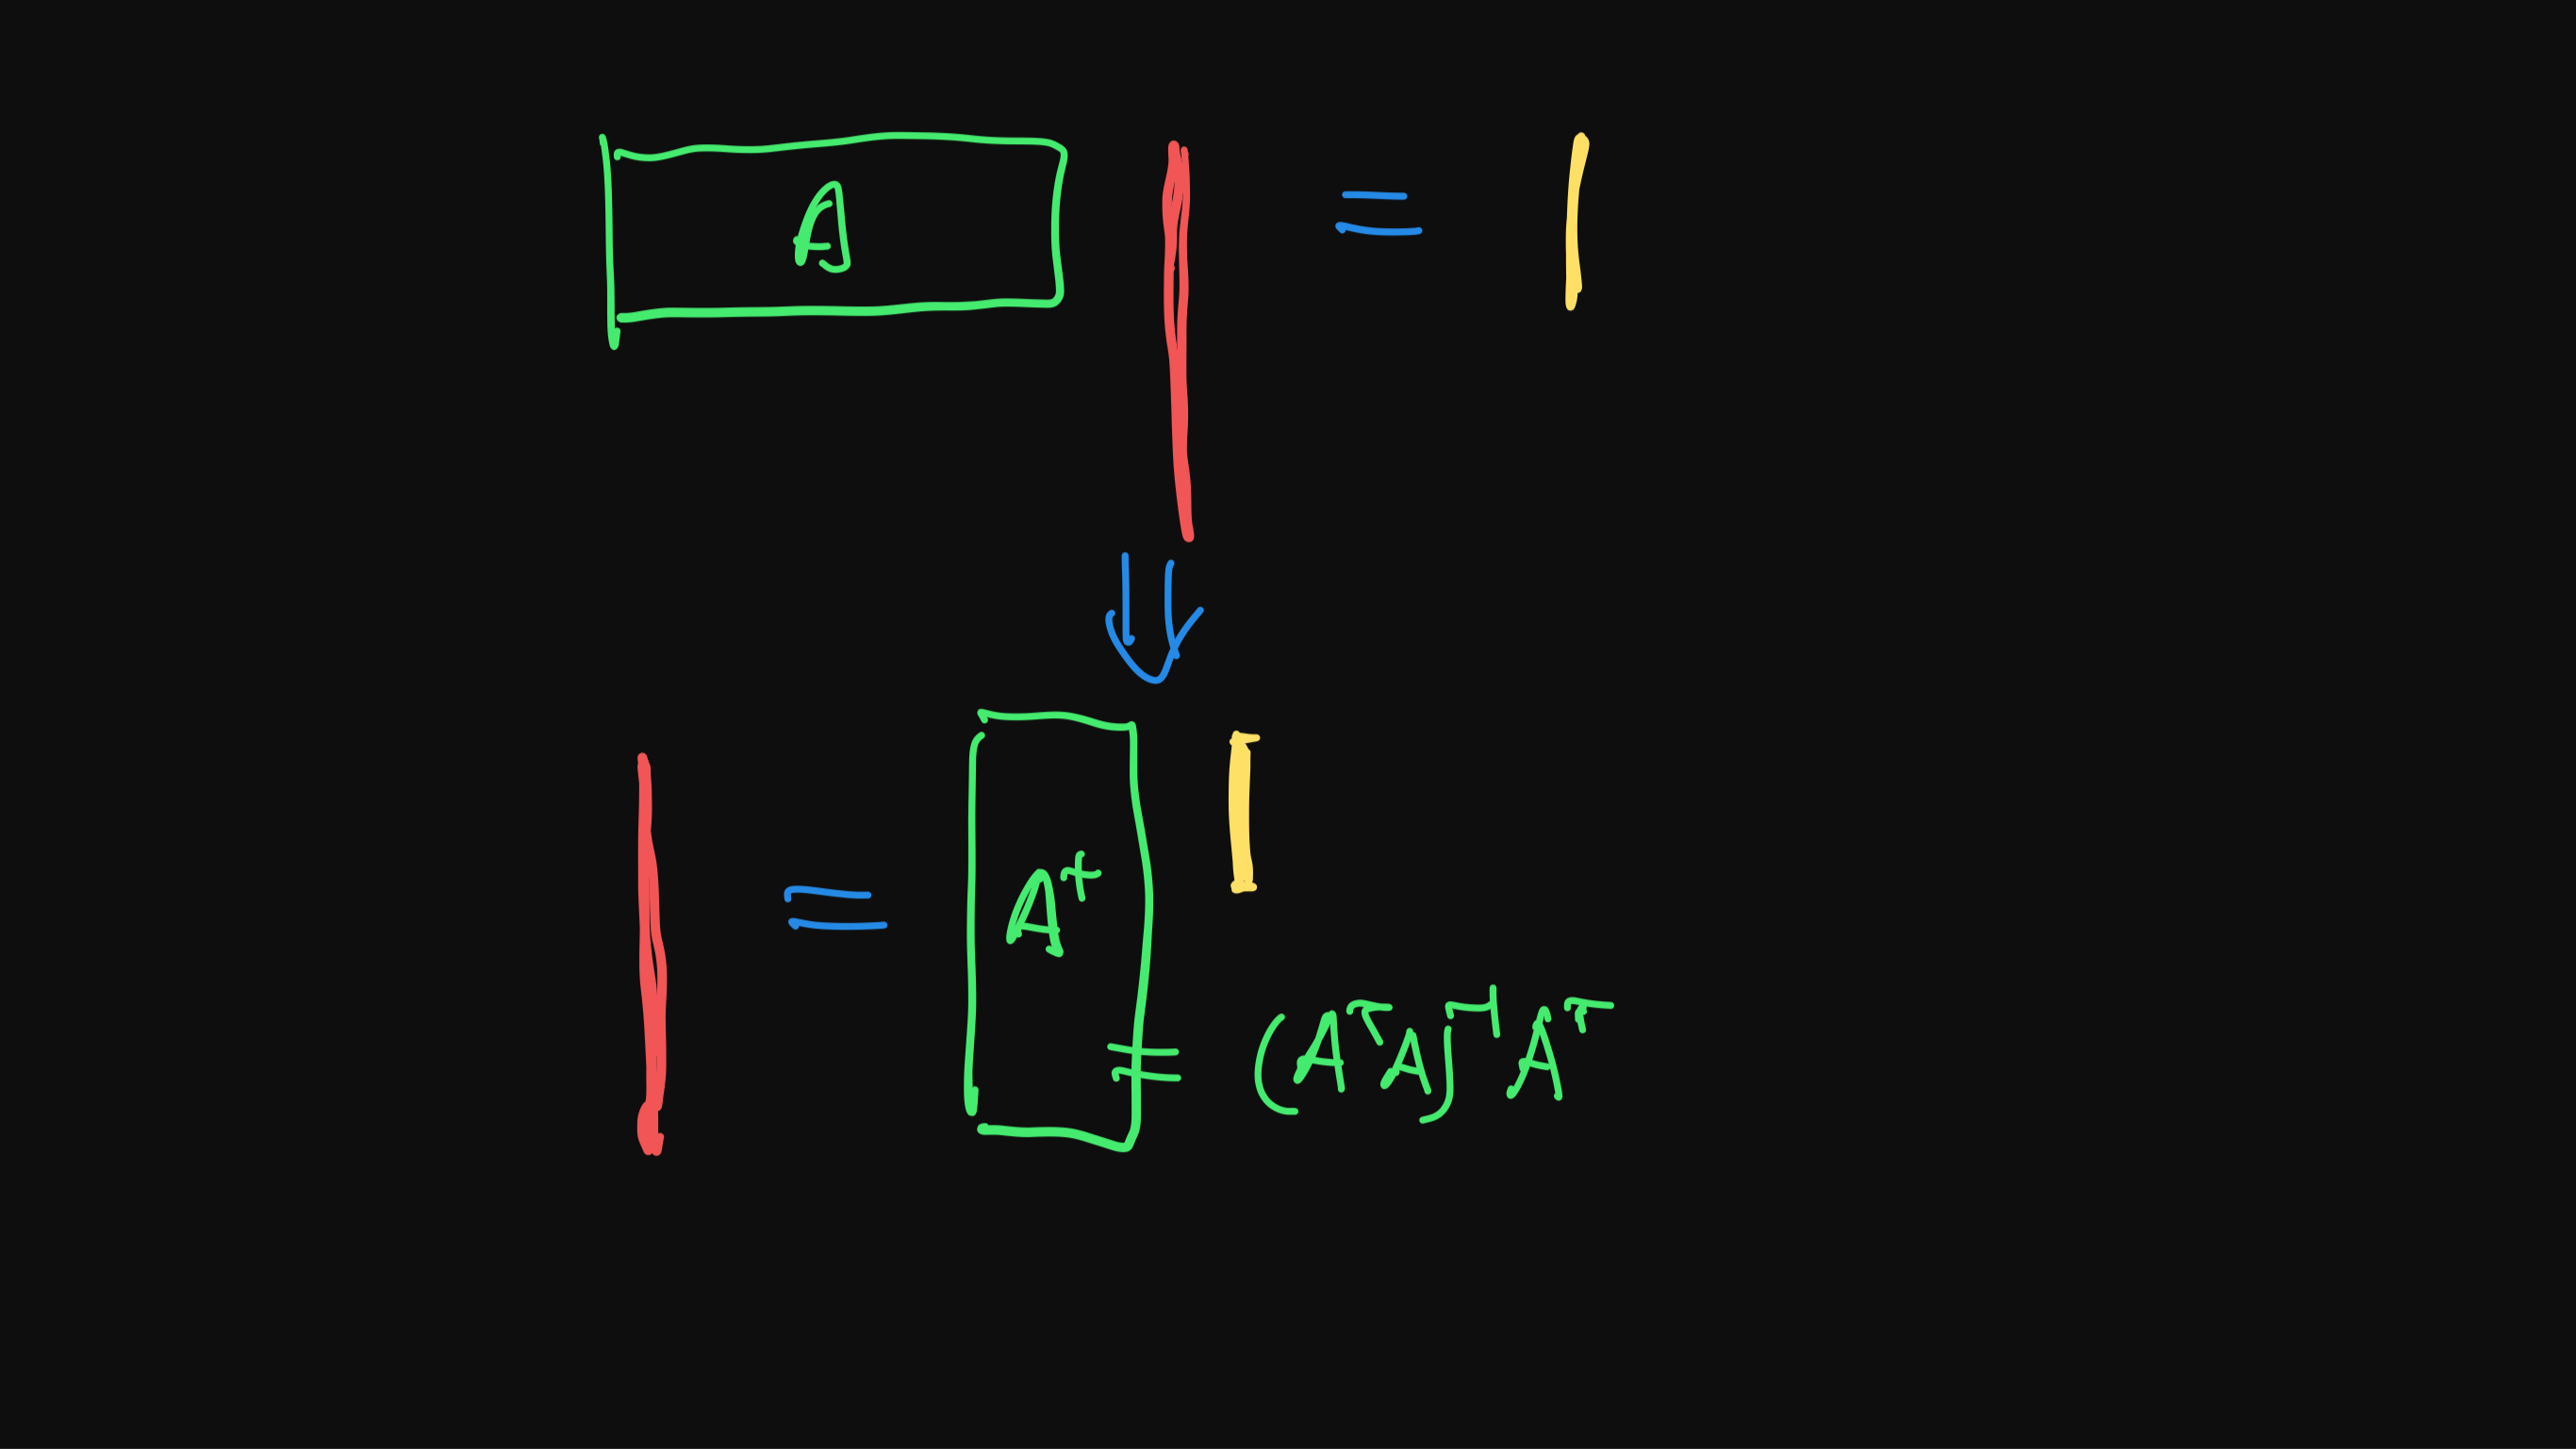 A =
= A⁺
= (AᵀA)⁻¹Aᵀ